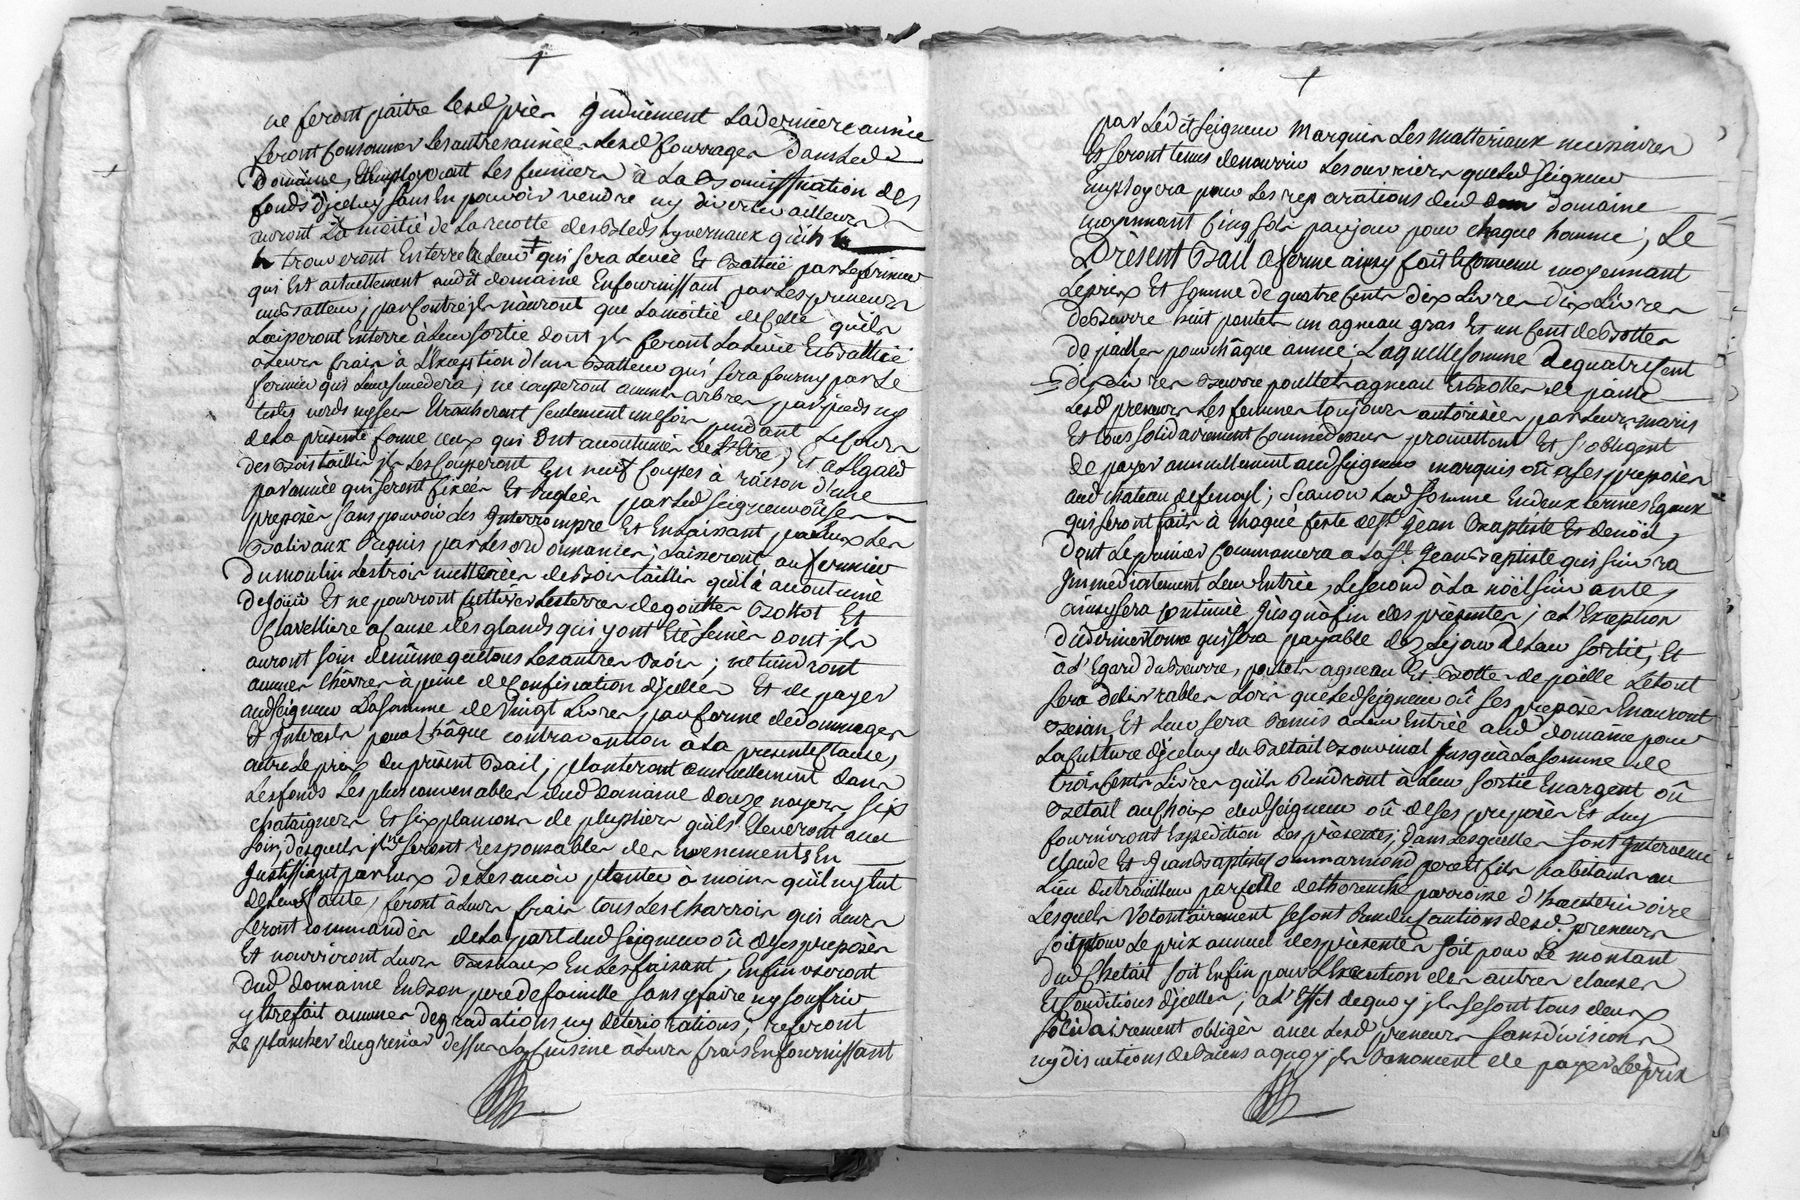 ne feront paitre lesd prés quderniement la derniere année
feront consommer les autres années lesd fourrages dans led
Domaine, Employeront les fumiers à la bonniffication des
fonds d'jceluy sans En pouvoir vendre ny divertir ailleurs
auront La moitié de La recolte des Bleds hyvernaux qu'ils
trouveront En terre a leur qui sera Levée Et Battue par Le fermier
qui Est actuellement audit domaine En fournissant par Les preneurs
un Batteur; par Contre jls n'auront que La moitié de Celle qu'ils
Laisseront Enterre à Leur sortie dont jls feront La Levée Et Battue
a Leurs frais à L'Exception d'un Batteur qui sera fourny par Le
fermier qui Leur succedera; ne couperont aucuns arbres par pieds ny
testes verds ny secs Ebrancheront seulement une fois pendant Le Cours
de La presente ferme ceux qui Ont accoutumé de L'Etre; Et a L'Egard
des Bois taillis jls Les Couperont En neuf Coupes à raison d'une
par année qui seront fixées Et Reglées par Led seigneur où ses
preposés sans pouvoir Les Interrompre Et En Laissant par Eux Les
Balivaux Requis par Les ordonnances; Laisseront au fermier
Du moulin Les trois metterées de Bois taillis qu'il à accoutumé
De Jouir Et ne pourront Cultiver Les terres de goutte Bottot Et
Clavelliere a Cause des glands qui y ont Eté semés dont jls
auront soin de même que tous Les autres Bois; ne tiendront
aucunes Chévres à peine de Confiscation d'jcelles Et de payer
aud seigneur La somme de Vingt Livres par forme de Dommages
Et Jnterests pour Châque contravention a La presente Clause,
outre Le prix du présent Bail; planteront annuellement dans
Les fonds Les plus convenables dud domaine douze noyers six
chataigners Et six plançons de peupliers qu'ils Eleveront avec
soin, desquels jls ne seront responsables des Evenements En
Justiffiant par eux de Les avoir plantés à moins qu'il ny Eut
de Leur faute, feront à Leurs frais tous Les Charrois qui Leurs
seront commandés de La part dud seigneur où de ses preposés
Et nourriront Leurs Bestiaux En Les faisant; Enfin useront
Dud domaine En Bon pere de famille sans y faire ny souffrir
y Etre fait aucunes degradations ny deteriorations; referont
Le plancher du grenier dessus La Cuisine à Leurs frais En fournissant
par Led it seigneur Marquis Les matteriaux necessaires
Et seront tenus de nourrir Les ouvriers que Led seigneur
Employera pour Les reparations dud domaine
moyennant Cinq sols par jour pour chaque homme; Le
Present Bail a ferme ainsy fait Et Convenu moyennant
Le prix Et somme de quatre Cents dix Livres dix Livres
de Beurre huit poulets un agneau gras Et un Cent de Bottes
De pailles pour châque année; Laquelle somme de quatre Cent
dix Livres Beurre poullets agneau Et Bottes de paille
Lesd preneurs Les femmes toujours autorisées par Leurs maris
Et tous solidairement Comme dessus promettent Et s'obligent
de payer annuellement aud seigneur marquis où a ses preposés
aud chateau de fenoyl; Scavoir Lad somme En deux termes Egaux
qui seront faits à chaque feste de St Jean Baptiste Et de noël,
Dont Le premier Commancera a La St Jean Baptiste qui suivra
Jmmediatement Leur Entrée, Le second à La noël suivante,
ainsy sera Continué jusqu'à fin des présentes; a L'Exception
Du dernier terme qui sera payable dez Le jour de Leur sortie; Et
à L'Egard du Beurre, poulets agneau Et Botte de paille Le tout
sera delivrables Lors que Led seigneur où ses preposés En auront
Besoin Et Leur sera Remis a Leur Entrée aud domaine pour
La Culture d'jceluy du Betail Bouvinal jusqu'à La somme de
trois Cents Livres qu'ils Rendront à Leur sortie En argent où
Betail au Choix dud seigneur où de ses preposés Et Luy
fourniront Expedition des présentes; Dans Lesquelles sont Intervenus
claude Et Jean Baptiste Commarmond pere Et fils habitants au
Lieu du trouilleur parcelle de thorenche parroisse d'hauterivoire
Lesquels Volontairement se sont Rendus Cautions desd. preneurs
soit pour Le prix annuel des présentes soit pour Le montant
dud Chetail soit Enfin pour L'Execution des autres clauses
Et Conditions d'jcelles; a L'Effet de quoy jls se sont tous deux
solidairement obligés avec Lesd preneurs sans division
ny discutions de Biens a quoy jls Renoncent de payer Led prix